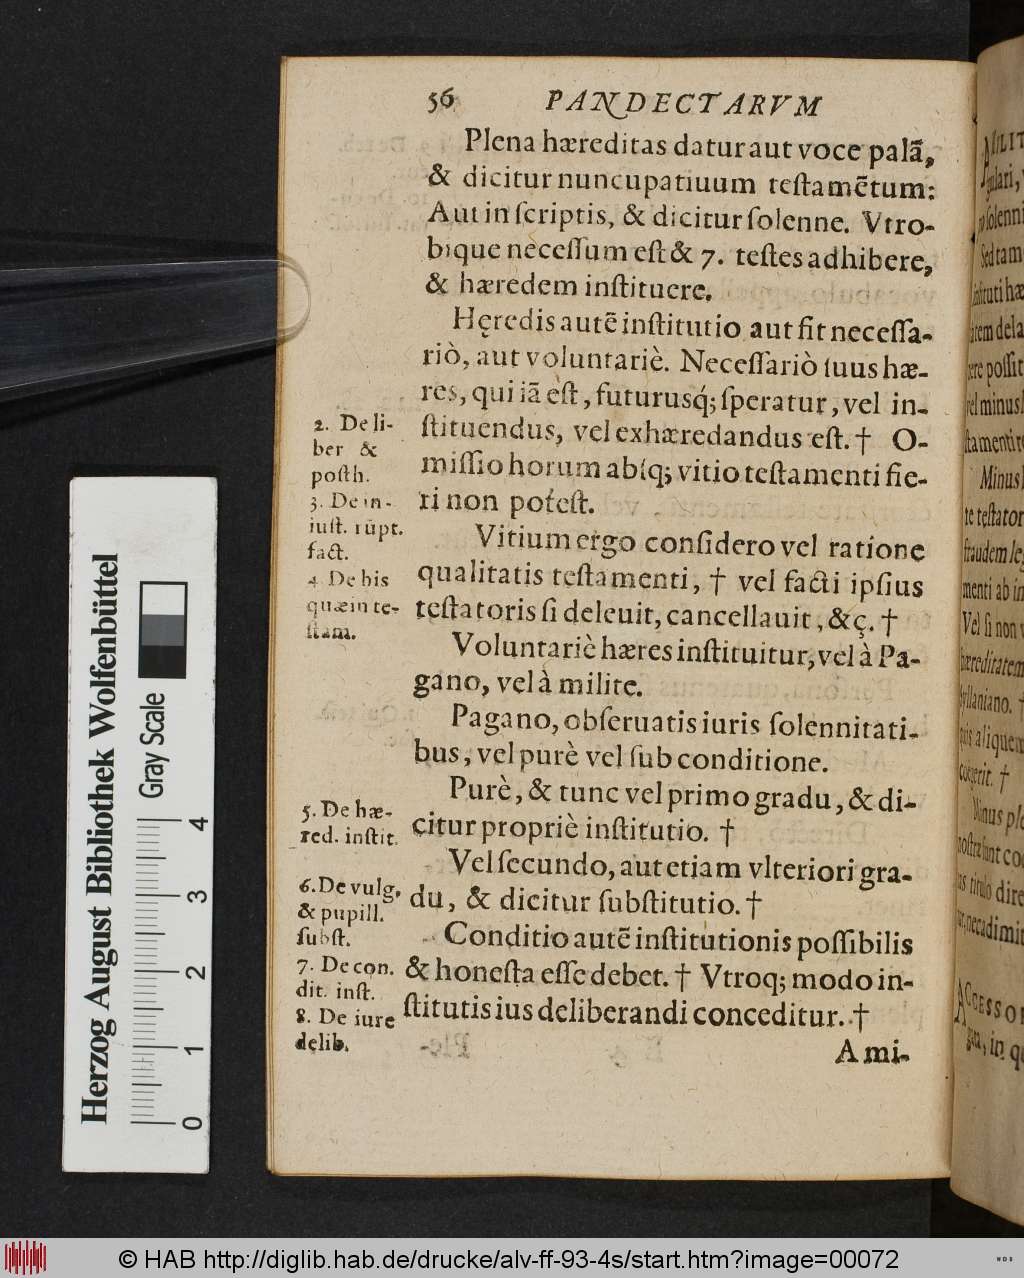 56 PANDECTARVM
Plena hæreditas datur aut voce palā,
& dicitur nuncupatiuum teſtamētum:
Aut in ſcriptis, & dicitur ſolenne. Vtro-
bique neceſſum eſt & 7. teſtes adhibere,
& hæredem inſtituere.
Hęredis autē inſtitutio aut fit neceſſa-
riò, aut voluntariè. Neceſſariò ſuus hæ-
res, qui iā eſt, futurusq́; ſperatur, vel in-
ſtituendus, vel exhæredandus eſt. † O-
miſſio horum abſq; vitio teſtamenti fie-
ri non poteſt.
Vitium ergo conſidero vel ratione
qualitatis teſtamenti, † vel facti ipſius
teſtatoris ſi deleuit, cancellauit, &ç. †
Voluntariè hæres inſtituitur, vel à Pa-
gano, vel à milite.
Pagano, obſeruatis iuris ſolennitati-
bus, vel purè vel ſub conditione.
Purè, & tunc vel primo gradu, & di-
citur propriè inſtitutio. †
Vel ſecundo, aut etiam vlteriori gra-
du, & dicitur ſubſtitutio. †
Conditio autē inſtitutionis poſſibilis
& honeſta eſſe debet. † Vtroq; modo in-
ſtitutis ius deliberandi conceditur. †
A mi-
2. De li-
ber &
poſth.
3. De in-
iuſt. rūpt.
fact.
4. De his
quæ in te-
ſtam.
5. De hæ-
red. inſtit.
6. De vulg.
& pupill.
ſubſt.
7. De con.
dit. inſt.
8. De iure
delib.
Sed tam
Minus
Vel ſi non
Herzog August Bibliothek Wolfenbüttel
Gray Scale
0 1 2 3 4
© HAB http://diglib.hab.de/drucke/alv-ff-93-4s/start.htm?image=00072